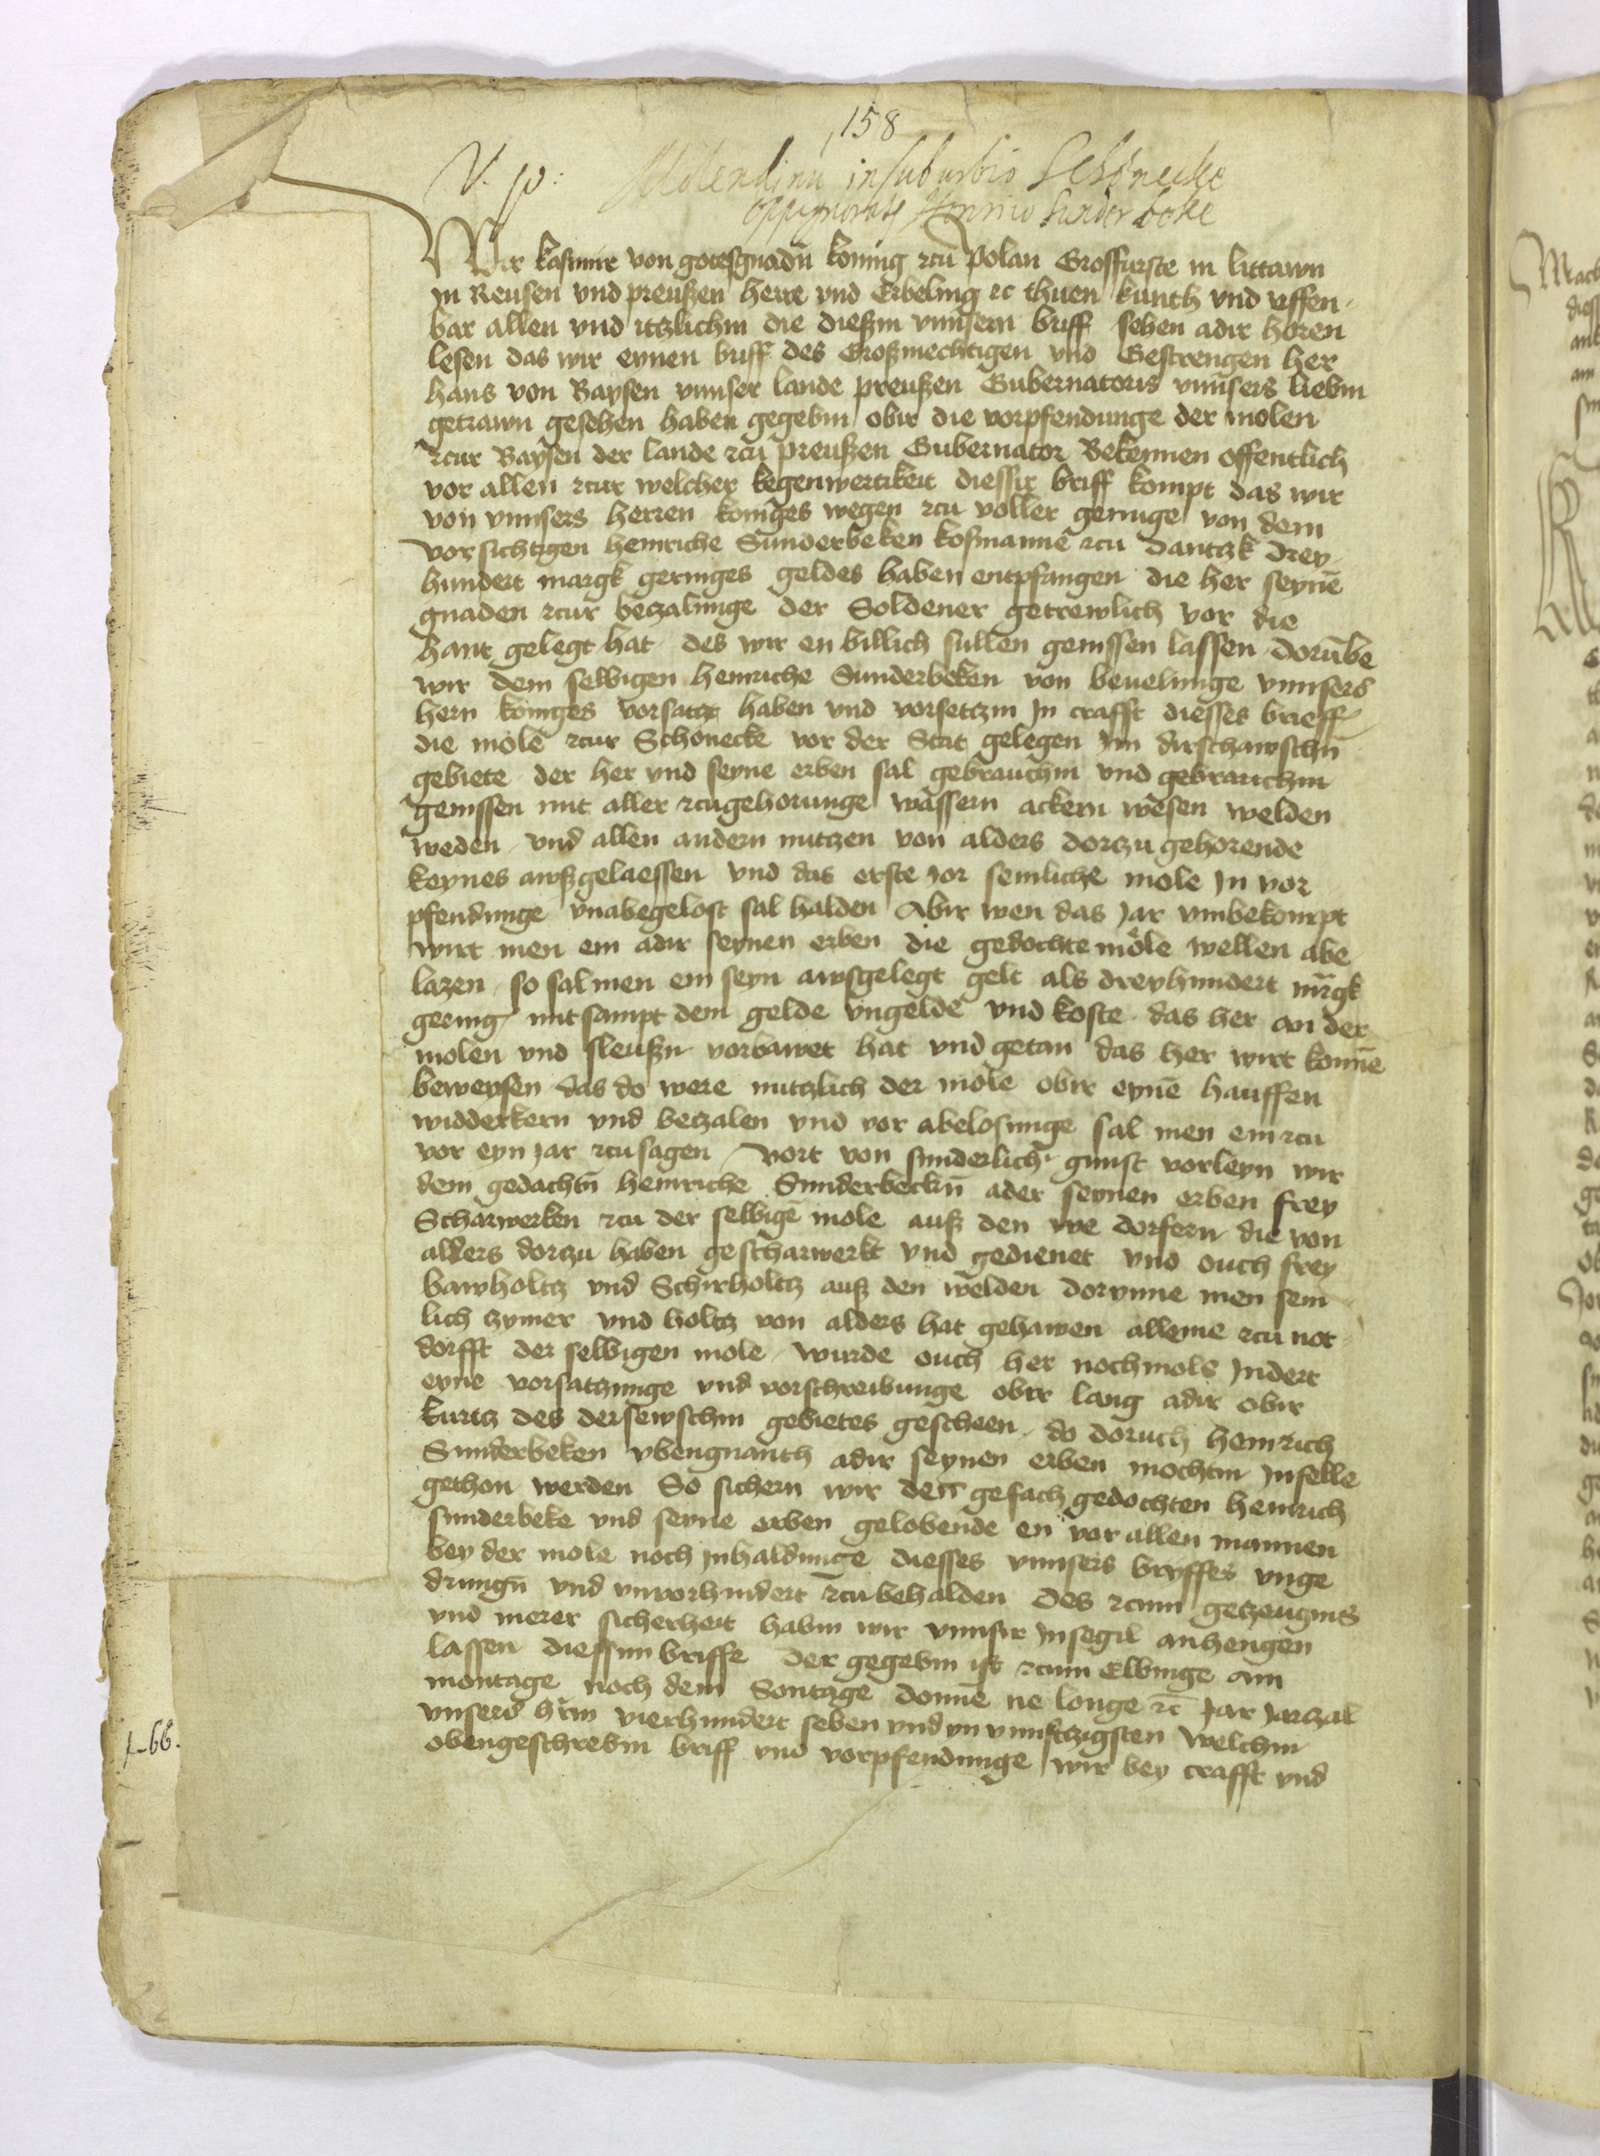 158
V. p: Molendinu in suburbio Schönecke
oppignorat Henrico Sunderbeke
Wir kasimir von gotesgnadn koning rcu Polan Grosfurste in littawn
in Reusen vnd preußen herre vnd Erbeling ec thuen kunth vnd vffen
bar allen vnd itzlichin die dießin vnnsern briff sehen adir horen
lesen das wir eynen briff des Großmechtigen vnd Gestrengen her
hans von Baysen vnnser lande preußen Gubernatoris vnnsers liebin
getrawn gesehen haben gegebin obir die vorpfendunge der molen
rcur Baysen der lande rcu preußen Gubernator Bekennen offentlich
vor allen rcur welcher kegenwertikeit diessir briff kompt das wir
von vnnsers herren koniges wegen rcu voller genuge von dem
vorsichtigen heinriche Sunderbeken kofmanne rcu dantzk drey
hundert margk geringes geldes haben entpfangen die her seyne
gnaden rcur beczalunge der Soldener getrewlich vor die
hant gelegt hat des wir en billich sullen genissen lassen dorumbe
wir dem selbigen heinriche Sunderbeken von beuelunge vnnsers
hern koniges vorsatcz haben vnd vorsettzin in crafft diesses brieff
die mole rcur Schonecke vor der Stat gelegen im dirschawschn
gebiete der her vnd seyne erben sal gebrauchin vnd gebrauchin
genissen mit aller rcugehorunge wassern ackern wesen welden
weden vnd allen andern nutzen von alders dorczu gehorende
keynes awßgelaessen vnd das erste jor semliche mole in vor
pfendunge vnabegelost sal halden Abir wen das jar vmbekompt
wirt men em adir seynen erben die gedochte mole wellen abe
lazen so sal men em seyn awsgelegt gelt als dreyhundert mrgk
gering mitsampt dem gelde vngelde vnd koste das her an der
molen vnd sleußn vorbawet hat vnd getan das her wirt konne
beweysen das do were nutzlich der mole obir eyne hauffen
widderkern vnd betzalen vnd vor abelosunge sal men em rcu
vor eyn jar rcusagen Vort von sunderlich gunst vorleyn wir
dem gedachtn heinriche Sunderbeckn ader seynen erben frey
Scharwerken rcu der selbige mole auß den we dorfern die von
alders dorczu haben gescharwerkt vnd gedienet vnd ouch frey
bawholtz vnd Schirholtz auß den welden dorynne men sem
lich zymer vnd holtz von alders hat gehawen alleine rcu not
dorfft der selbigen mole wurde ouch her nochmols indert
eyne vorsatzunge vnd vorschreibunge obir lang adir obir
kurtz des dersewschin gebietes gescheen do doruch heinrich
Sunderbeken obengnanth adir seynen erben mochtin inselle
gethon werden So sichern wir den gefach gedochten heinrich
sunderbeke vnd seyne erben gelobende en vor allen mannen
bey der mole noch inhaldunge diesses vnnsers bryffes vnge
drungn vnd vnvorhindert rcubehalden Des rcum getzeugnis
vnd merer sicherheit habin wir vnnsir insegil anhengen
lassen diessim briffe der gegebin ist rcum Elbinge am
montage noch dem Sontage domine ne longe ec jar jarczal
vnsers hrn vierhundert seben vnd yn vunftzigsten Welchin
obengeschrebin briff vnd vorpfendunge wir bey crafft vnd
1-66.